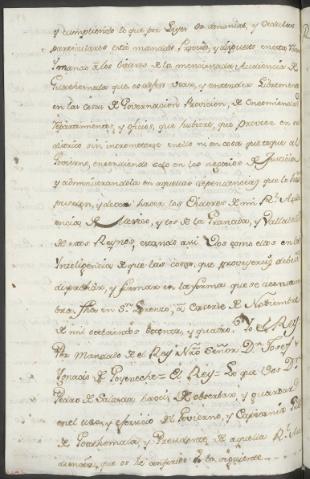 y cumpliendo lo que por Leyes, ordenanzas, y Cedulas
particulares está mandado
y mando á los Oidores de la mencionada Audiencia de
Guathemala que os dejen usar, y entender Libremente
en las cosas de Governacion Provision, de Encomiendas
Repartimientos, y oficios, que hubiere, que proveer en su
distrito sin entremeterse en ello ni en cosa que toque al
Govierno, entendiendo solo en los negocios de Justicia
y administrandola en aquellas dependencias que lo
y deven hacer los Oidores de mi Rl. Audiencia
de Mexico, y los de la Granada, y Valladolid
de estos Reynos, estando asi Vos como ellos en la
Inteligencia de que las cosas que proveyereis, debeis
despachar, y firmar en la forma que se acostumbra
fha en Sn. Lorenzo, á Catorce de Nobiembre
de mil setecientos setenta, y quatro. Yo el Rey
Por Mandado del Rey Ntro Señor Dn. Josef
Ignacio de Goyeneche = El Rey = Lo que Vos Dn.
Pedro de Salazar, haveis de observar, y guardar
en el uso, y exercicio del Govierno, y Capitania Gl.
de Goathemala, y Presidente de aquella Rl. Audiencia,
que os he conferido és lo siguiente